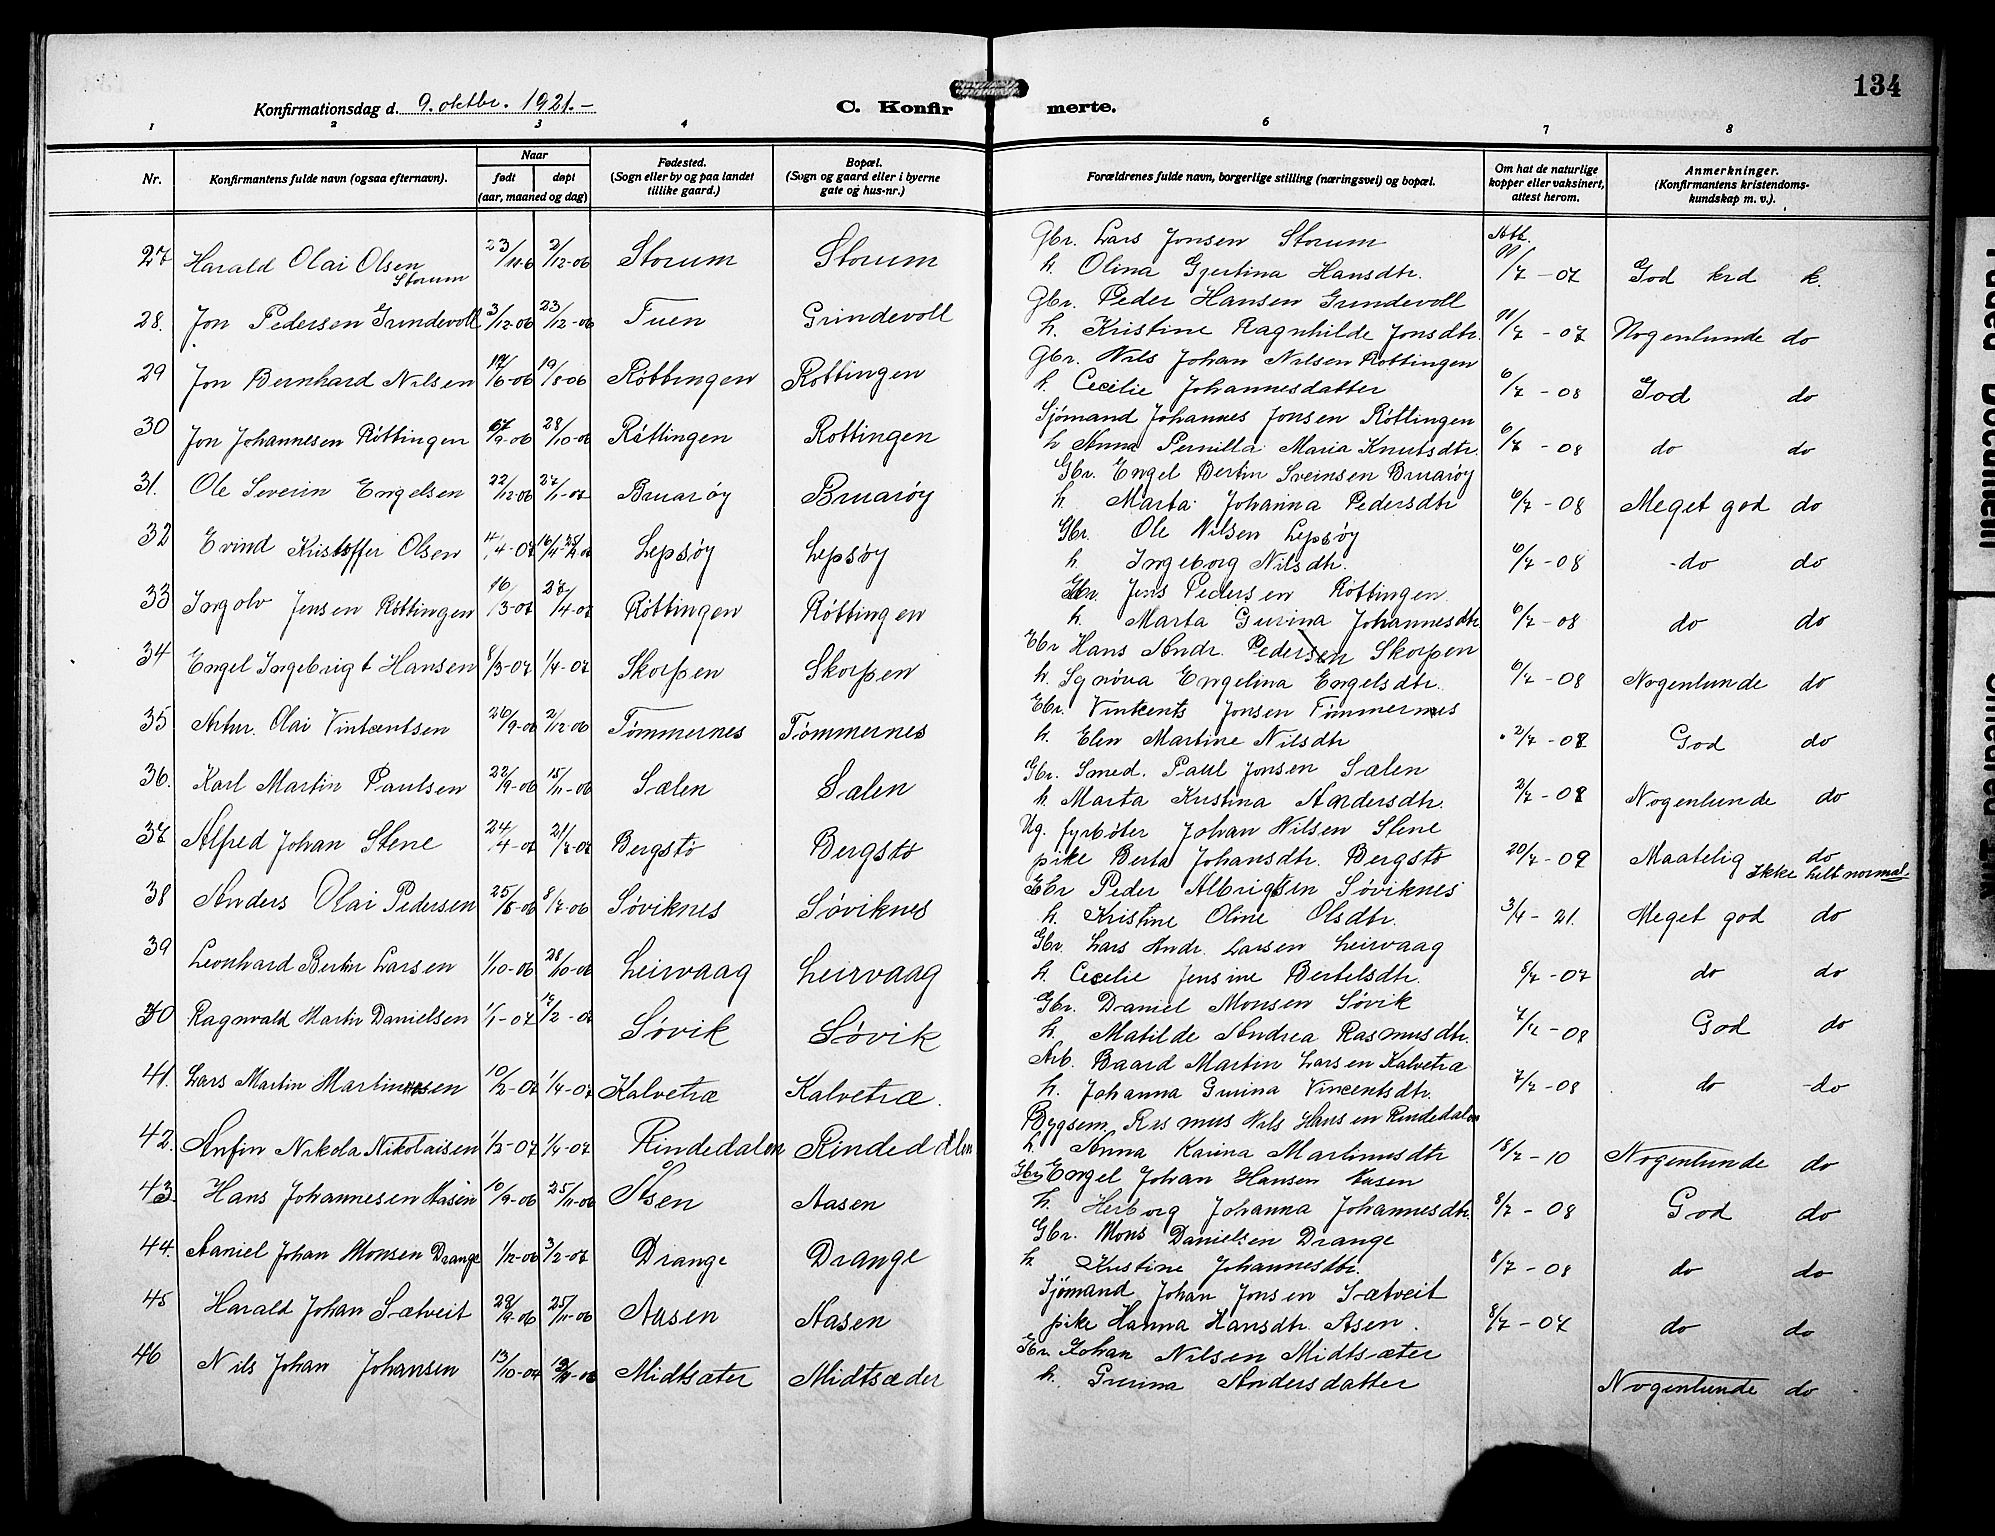 134
Konfirmationsdag d. 9. oktbr. 1921.-
C. Konfirmerte.
1 2 3 4 5 6 7 8
Nr. Konfirmantens fulde navn (ogsaa efternavn). Naar født døpt (aar, maaned og dag) Fødested. (Sogn eller by og paa landet tillike gaard.) Bopæl. (Sogn og gaard eller i byerne gate og hus-nr.) Forældrenes fulde navn, borgerlige stilling (næringsvei) og bopæl. Om hat de naturlige kopper eller vaksinert, attest herom. Anmerkninger. (Konfirmantens kristendoms-kundskap m. v.).
27 Harald Olai Olsen Storum 23/11-6 2/12-06 Storum Storum Gbr. Lars Jonsen Storum
h. Olina Gjertina Hansdtr. Att. 11/7-07 God krd k.
28. Jon Pedersen Grindevoll 3/12-06 23/12-06 Tuen Grindevoll Gbr. Peder Hansen Grindevoll
h. Kristine Ragnhilde Jonsdtr. 11/7-07 Nogenlunde do
29 Jon Bernhard Nilsen 17/6-06 19/8-06 Röttingen Rottingen Gbr. Nils Johan Nilsen Rottingen
h. Cecilie Johannesdatter 6/7-08 God do
30 Jon Johannesen Röttingen 28/10-06 Röttingen Rottingen Sjömand Johannes Jonsen Röttingen
h Anna Pernilla Maria Knutsdtr. 6/7-08 do do
31. Ole Severin Engelsen 22/12-06 27/1-07 Bruarøy Bruarøy Gbr. Engel Bertin Sveinsen Bruarøy
h. Marta Johanna Pedersdtr 6/7-08 Meget god do
32 Evind Kristoffer Olsen Lepsøy Lepsøy Gbr. Ole Nilsen Lepsøy
h. Ingeborg Nilsdtr. 6/7-08 -do do
33 Ingolv Jensen Röttingen 16/3-07 27/4-07 Röttingen Röttingen Gbr. Jens Pedersen Röttingen
h. Marta Gurina Johannesdtr 6/7-08 do do
34 Engel Ingebrigt Hansen 8/3-07 1/4-07 Skorpen Skorpen Gbr Hans Andr. Pedersen Skorpen
h. Synöva Engelina Engelsdtr. 6/7-08 Nogenlunde do
35 Artur. Olai Vintcentsen 26/9-06 2/12-06 Tømmernes Tømmernes Gbr. Vintcents Jonsen Tømmernes
h. Elen Martine Nilsdtr 2/7-08 God do
36. Karl Martin Paulsen 22/9-06 15/11-06 Sælen Sælen Gbr. Smed. Paul Jonsen Sælen
h. Marta Kristina Andersdtr. 2/7-08 Nogenlunde do
37 Alfred Johan Stene 24/4-07 21/7-07 Bergstø Bergstø Ug. fyrbøter Johan Nilsen Stene
pike Berta Johansdtr. Bergstø 20/7-09 Maatelig do Ikke helt normal.
38 Anders Olai Pedersen 25/5-06 8/7-06 Søviknes Søviknes Gbr Peder Albrigtsen Søviknes
h. Kristine Oline Olsdtr. 3/4-21. Meget god do
39 Leonhard Bertin Larsen 1/10-06 28/10-06 Leirvaag Leirvaag Gbr. Lars Andr. Larsen Leirvaag
h. Cecelie Jensine Bertelsdtr. 8/7-07 do do
40 Ragnvald Martin Danielsen 1/1-07 Søvik Søvik Gbr. Daniel Monsen Søvik
h. Matilde Andrea Rasmusdtr. 7/12-08 God do
41. Lars Martin Martinussen 10/2-07 1/4-07 Kalvetræ Kalvetræ. Arb. Baard Martin Larsen Kalvetræ
h. Johanna Gurina Vincentsdtr. 7/7-08 do -do
42. Anfin Nikola Nikolaisen 1/2-07 1/4-07 Rindedalen Rindedalen Bygsem. Rasmus Nils Hansen Rindedalen
h. Anna Karina Martinusdtr 18/7-10 Nogenlunde do
43. Hans Johannesen Aasen 10/9-06 25/11-06 Åsen Aasen Gbr Engel Johan Hansen Aasen
h. Herborg Johanna Johannesdtr. 8/7-08 God do
44. Daniel Johan Monsen Drange 1/12-06 3/2-07 Drange Drange Gbr. Mons Danielsen Drange
h. Kristine Johannesdtr. 8/7-08 do do
45 Harald Johan Sætveit 29/9-06 25/11-06 Aasen Aasen Sjømand Johan Jonsen Sætveit
pike Hanna Hansdtr. Asen. 8/7-07 do do
46 Nils Johan Johansen Midtsæter Midtsæder Gbr Johan Nilsen Midtsæter
h. Gurina Andersdatter Nogenlunde do